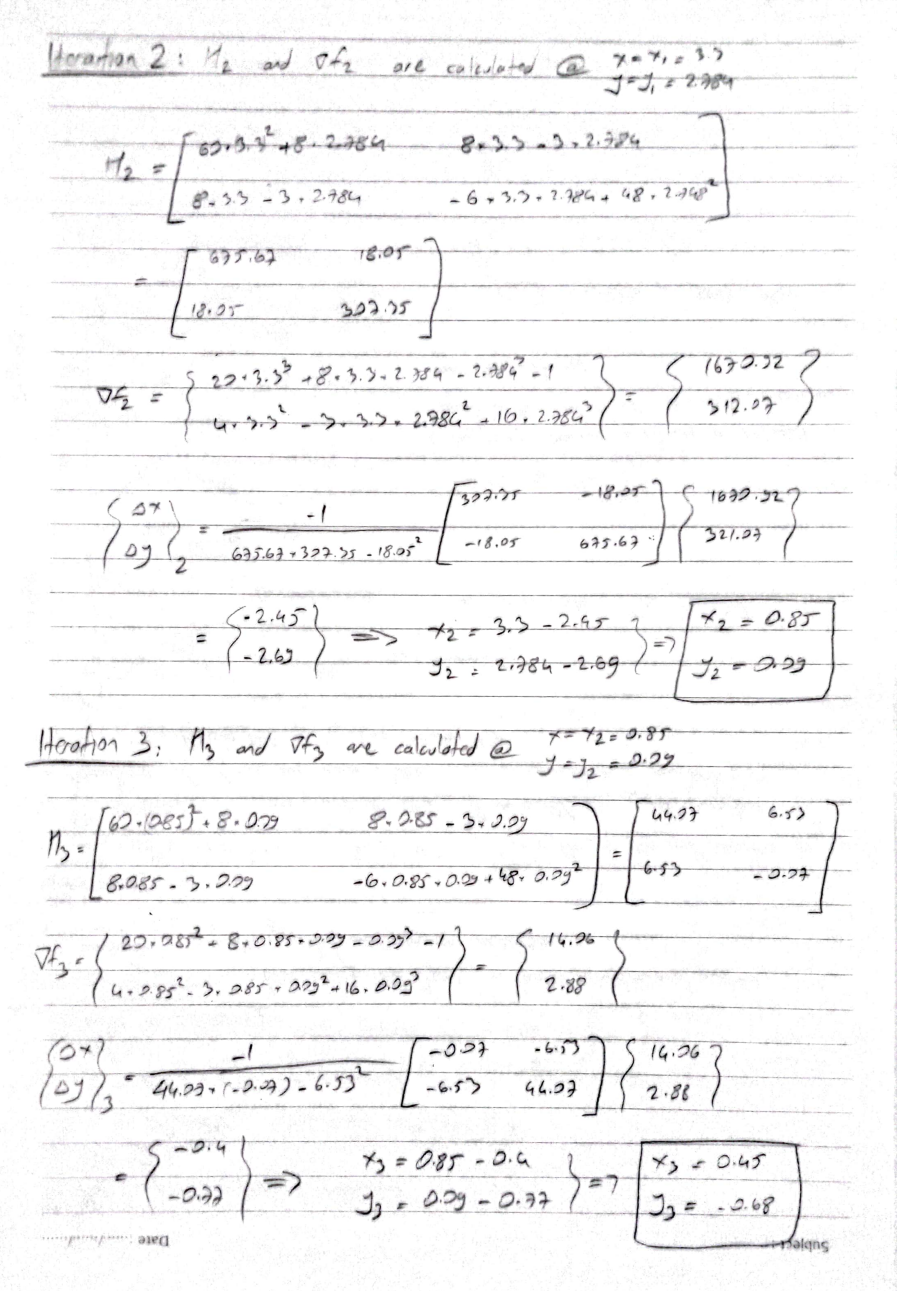 Iteration 2: H₂ and ∇f₂ are calculated @ x=x₁=3.3
y=y₁=2.784
H₂ = [ 60·3.3²+8·2.784 8×3.3-3·2.784
8·3.3-3·2.784 -6·3.3·2.784+48·2.748² ]
= [ 675.67 18.05
18.05 307.35 ]
∇f₂ = { 20·3.3³+8·3.3·2.784-2.784³-1
4·3.3²-3·3.3·2.784²+16·2.784³ } = { 1670.92
312.07 }
{ Δx
Δy }₂ = -1 / 675.67·307.35-18.05² [ 307.35 -18.05
-18.05 675.67 ] { 1670.92
321.07 }
= { -2.45
-2.69 } => x₂ = 3.3-2.45
y₂ = 2.784-2.69 } => x₂ = 0.85
y₂ = 0.09
Iteration 3: H₃ and ∇f₃ are calculated @ x=x₂=0.85
y=y₂=0.09
H₃ = [ 60·(0.85)²+8·0.09 8·0.85-3·0.09
8·0.85-3·0.09 -6·0.85·0.09+48·0.09² ] = [ 44.07 6.53
6.53 -0.07 ]
∇f₃ = { 20·0.85²+8·0.85·0.09-0.09³-1
4·0.85²-3·0.85·0.09²+16·0.09³ } = { 14.06
2.88 }
{ Δx
Δy }₃ = -1 / 44.07·(-0.07)-6.53² [ -0.07 -6.53
-6.53 44.07 ] { 14.06
2.88 }
= { -0.4
-0.77 } => x₃ = 0.85-0.4
y₃ = 0.09-0.77 } => x₃ = 0.45
y₃ = -0.68
Subject :
Date : ....../....../......